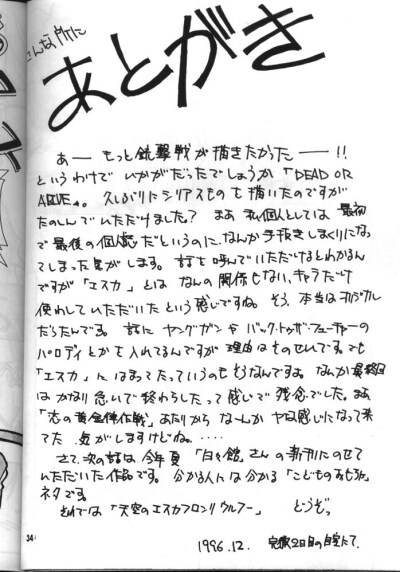 こんな所に
あとがき
あ── もっと銃撃戦が描きたかった──!!
というわけで いかがだったでしょうか「DEAD OR
ALIVE」。久しぶりにシリアスものを描いたのですが
たのしんでいただけました? まあ 私個人としては 最初
で最後の個人誌だというのに、なんか手抜きしまくりになっ
てしまった気がします。話を読んでいただけるとわかるん
ですが「エスカ」とは なんの関係もない、キャラだけ
使わしていただいた という感じですね。そう、本当はオリジナル
だったんです。話に ヤングガンや バック・トゥ・ザ・フューチャーの
パロディとかを入れてるんですが 理由はそのせいです。でも
「エスカ」に はまってたっていうのもそうなんですよ。なんか最終回
は かなり急いで終わらしたって感じで 残念でした。まあ
「恋の黄金律作戦」あたりから なーんか ヤな感じになって来
てた 気がしますけどね。‥‥
さて、次の話は今年夏「日々館」さんの新刊にのせて
いただいた作品です。分かる人には分かる「こどものおもちゃ」
ネタです。
それでは「天空のエスカフロンリウルフー」 どうぞっ
1996.12. 完徹2日目の自室にて.
34